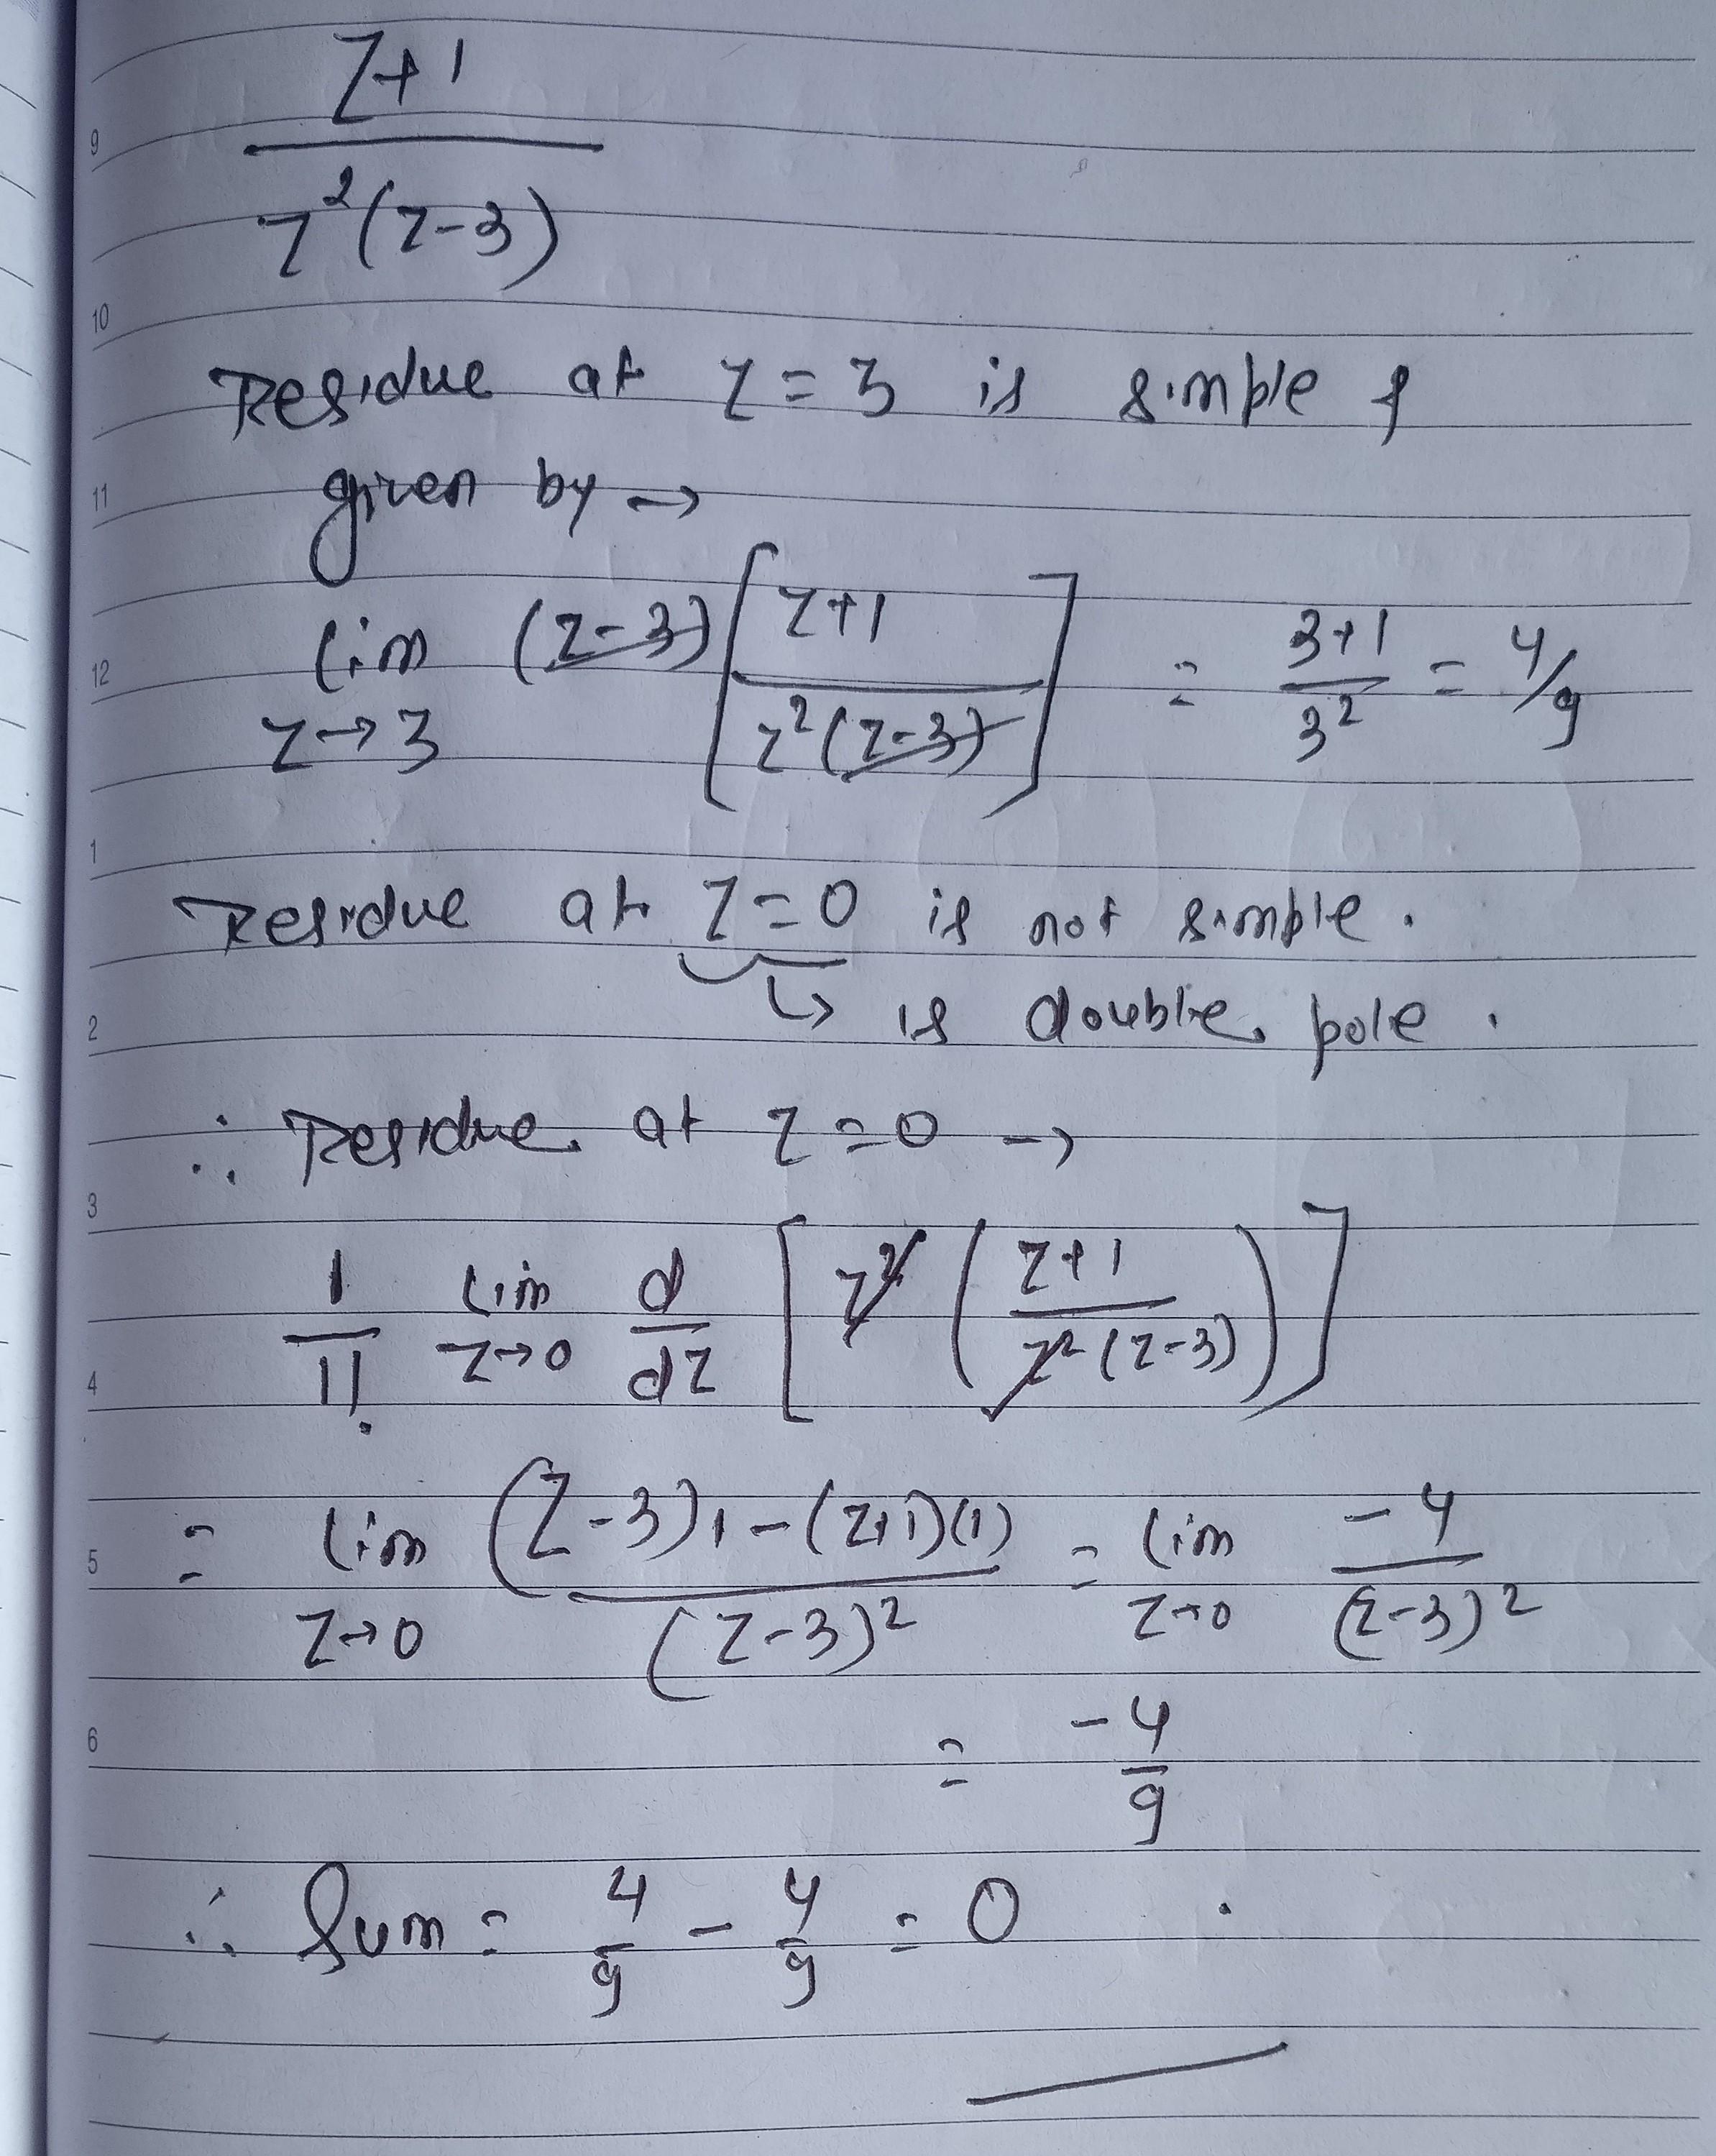 z+1
z²(z-3)
Residue at z=3 is simple &
given by →
lim (z-3) [ z+1 / z²(z-3) ] = 3+1 / 3² = 4/9
z→3
Residue at z=0 is not simple.
↳ is double pole.
∴ Residue at z=0 →
1/1! lim z→0 d/dz [ z² ( z+1 / z²(z-3) ) ]
= lim z→0 (z-3)1-(z+1)(1) / (z-3)² = lim z→0 -4 / (z-3)²
= -4/9
∴ Sum = 4/9 - 4/9 = 0
9
10
11
12
1
2
3
4
5
6